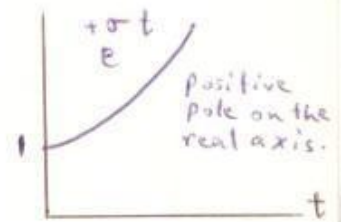 +σt
e
positive
pole on the
real axis.
1
t